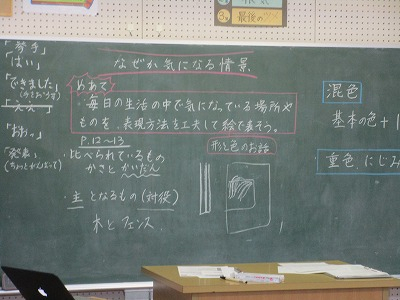 最後の
「挙手」
「はい」
「できました」
「ええー」
「おおっ」
「発表」
(ちょっとがんばって)
なぜか気になる情景
めあて
・毎日の生活の中で気になっている場所や
ものを、表現方法を工夫して絵で表そう。
P.12~13
・比べられているもの
かさと かいだん
・主 となるもの(対役)
木と フェンス
形と色のお話
混色
基本の色+1
重色、にじみ